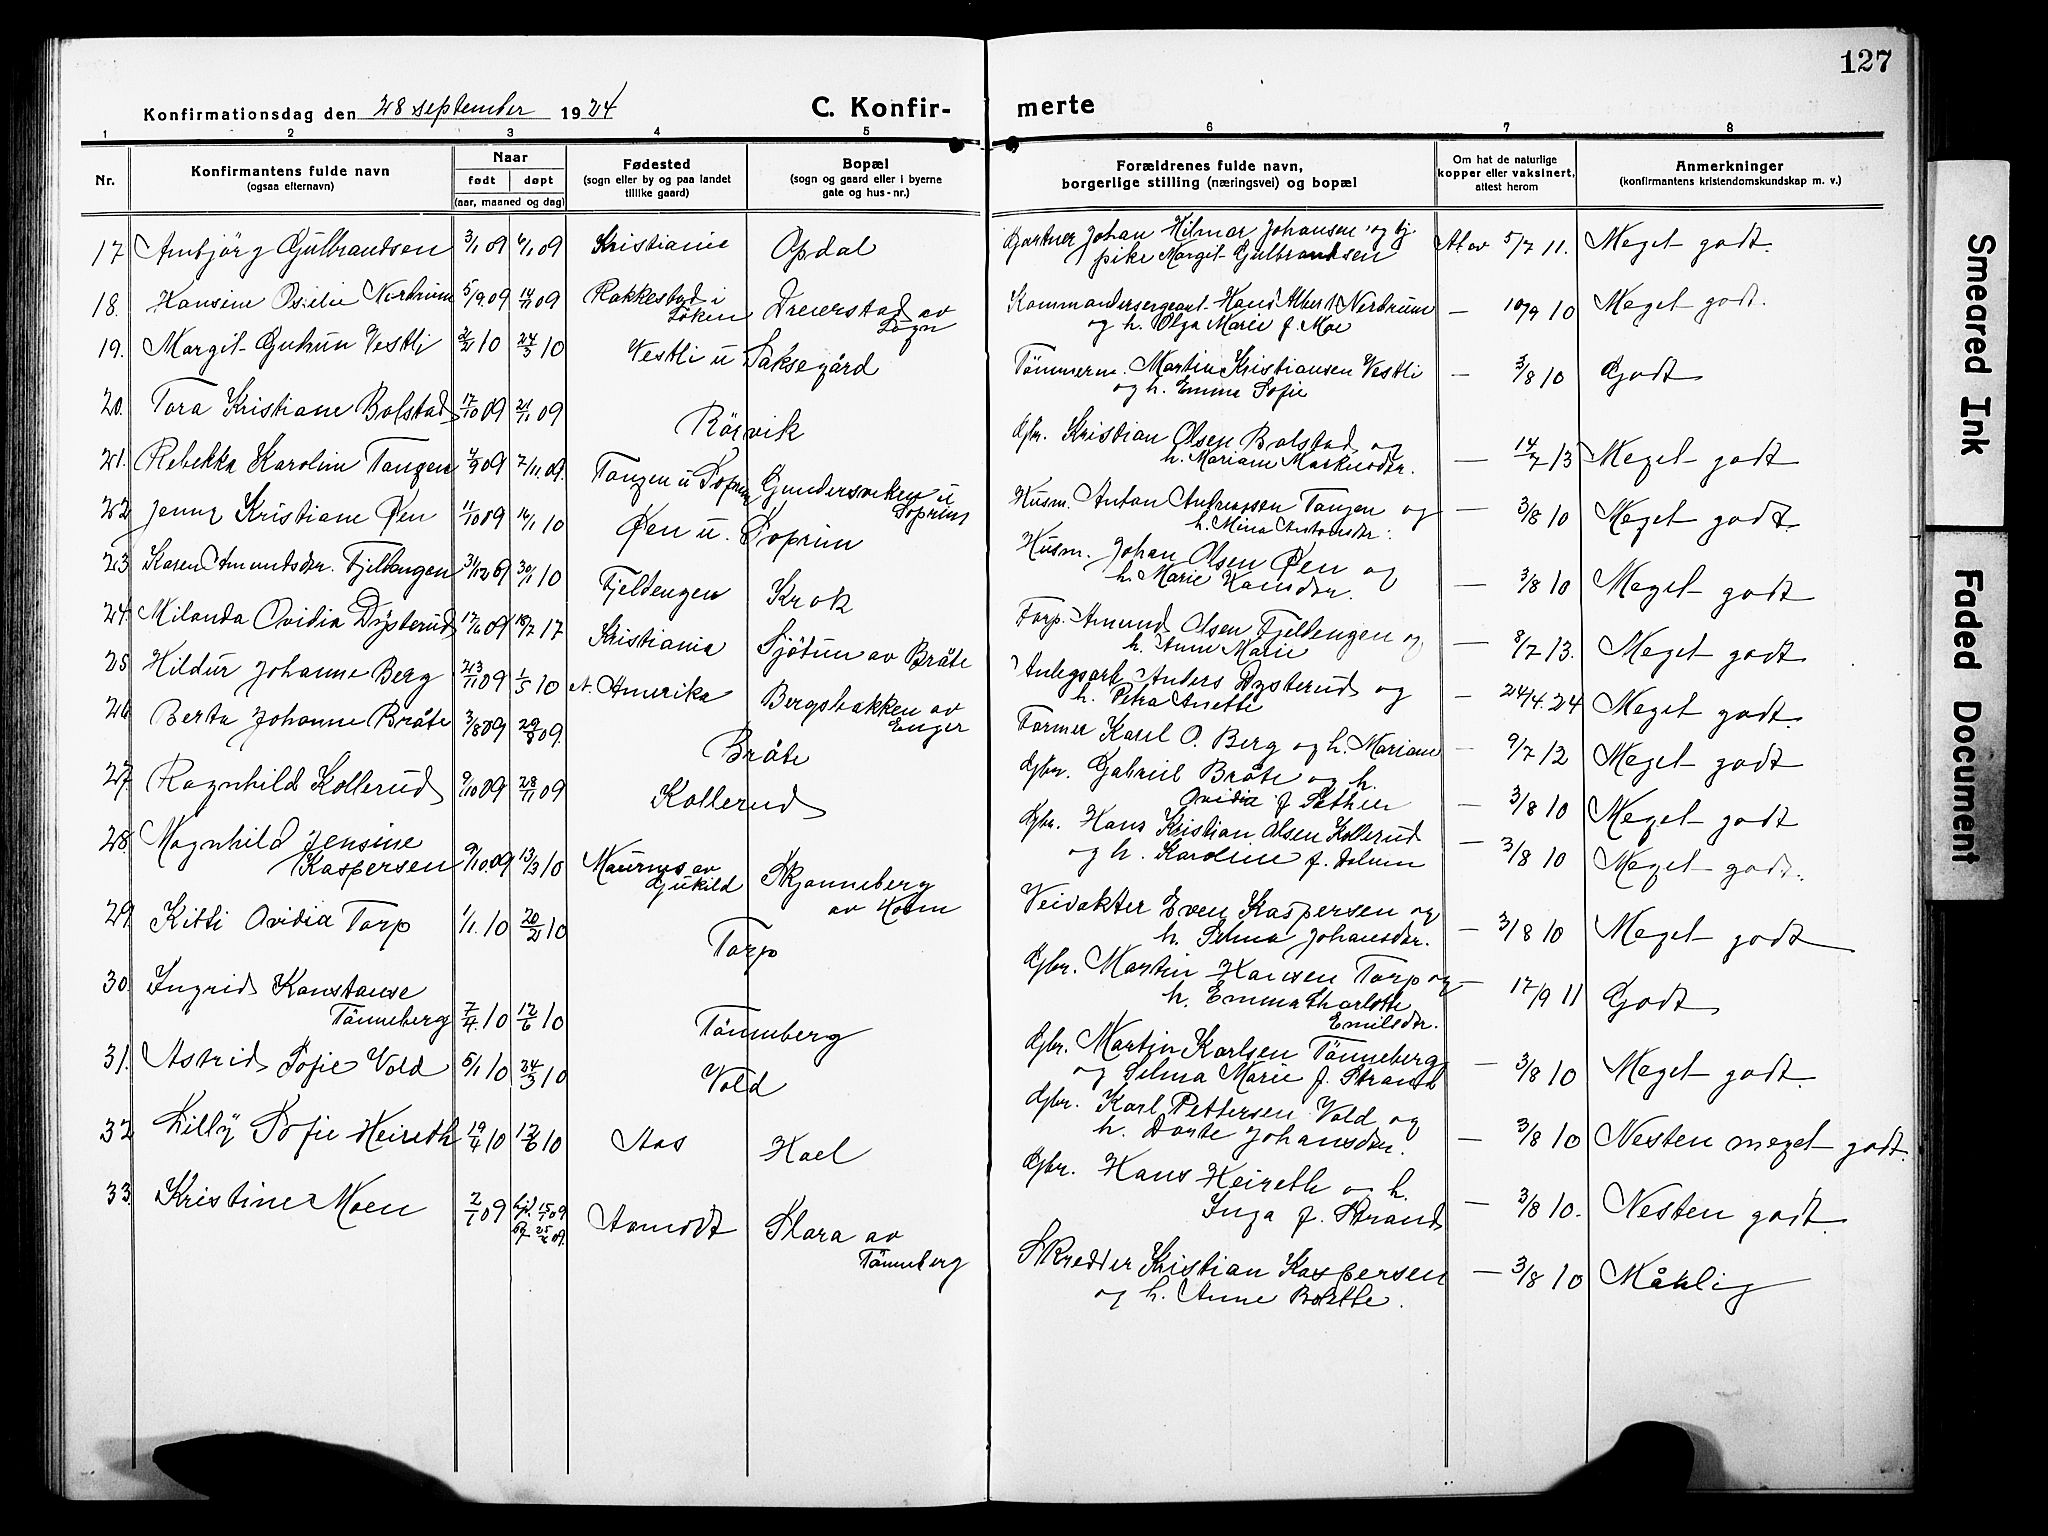 127
Konfirmationsdag den 28 september 1924
C. Konfir-
merte
1 2 3 4 5 6 7 8
Nr.
Konfirmantens fulde navn
(ogsaa efternavn)
Naar
født døpt
(aar, maaned og dag)
Fødested
(sogn eller by og paa landet
tillike gaard)
Bopæl
(sogn og gaard eller i byerne
gate og hus-nr.)
Forældrenes fulde navn,
borgerlige stilling (næringsvei) og bopæl
Om hat de naturlige
kopper eller vaksinert,
attest herom
Anmerkninger
(konfirmantens kristendomskundskap m. v.)
17 Ambjörg Gulbrandsen 3/1 09 09 Kristiania Opdal Gartner Johan Hilmar Johansen og
pike Margit Gulbrandsen At av 5/7 11. Meget godt.
18. Hansine Oselie Nerdrum 5/9 09 14/11 09 Rakkestad i
Söken Dreierstad av
Sogn Kommandersergeant Hans Albert Nerdrum
og h. Olga Marie f. Moe — 10/9 10 Meget godt.
19. Margit Gudrun Vestli 2/2 10 24/3 10 Vestli u Saksegård Tömmerm. Martin Kristiansen Vestli
og h. Emma Sofie — 3/8 10 Godt
20. Tora Kristiane Bolstad 17/10 09 21/11 09 Rörvik Gbr. Kristian Olsen Bolstad og
h. Mariane Markusdtr. — 14/7 13 Meget godt
21. Rebekka Karoline Tangen 4/9 09 7/11 09. Tangen u Soprim Gundersviken u
Soprim Husm. Anton Andreassen Tangen og
h. Mina Antonsdtr. — 3/8 10 Meget godt.
22 Jenny Kristiane Øen 11/10 09 14/1 10 Øen u. Soprim Husm. Johan Olsen Øen og
h. Marie Hansdtr. — 3/8 10 Meget godt
23 Karen Amundsdtr. Fjeldengen 31/12 09 30/1 10 Fjeldengen Krok Forp. Amund Olsen Fjeldengen og
h. Anne Marie — 8/7 13. Meget godt
24. Milanda Ovidia Dysterud 17/6 09 18/7 17 Kristiania Sjötun av Bråte Anlegsarb. Anders Dysterud og
h. Petra Anette — 24/4. 24 Meget godt.
25 Hildur Johanne Berg 23/11 09 1/5 10 N. Amerika Bergsbakken av
Enger Farmer Karl O. Berg og h. Mariane — 9/7 12 Meget godt
26 Berta Johanne Bråte 3/8 09 29/8 09. Bråte Gbr. Gabriel Bråte og h.
Ovidia f. Sæther — 3/8 10 Meget godt
27. Ragnhild Kollerud 9/10 09 28/11 09 Kollerud Gbr. Hans Kristian Olsen Kollerud
og h. Karoline f. — 3/8 10 Meget godt.
28. Magnhild Jensine
Kaspersen 9/10. 09 13/3 10 av
Gukild Skjønneberg
av Holm Veivakter Even Kaspersen og
h. Selma Johansdtr. — 3/8 10 Meget godt
29. Kitti Ovidia Torp 1/1. 10 20/2 10 Torp Gbr. Martin Hansen Torp og
h. Emma Charlotte
Emilsdtr. — 17/9 11 Godt
30. Ingrid Konstanse
Tönneberg 7/4 10 12/6 10 Tönneberg Gbr. Martin Karlsen Tönneberg
og Selma Marie f. Strand — 3/8 10 Meget godt.
31. Astrid Sofie Vold 5/1 10 24/3 10 Vold Gbr. Karl Pettersen Vold og
h. Dorte Johansdtr. — 3/8 10 Nesten meget godt.
32 Lilly Sofie Heireth 19/4 10 12/6 10 Aas Hael Gbr. Hans Heireth og h.
Inga f. Strand — 3/8 10. Nesten godt
33. Kristine Moen 2/1 09 hjd. 15/1 09
09. Aamodt Slora av
Tönneberg Skredder Kristian Kaspersen
og h. Anne Bolette. — 3/8 10 Måtelig
Smeared Ink
Faded Document